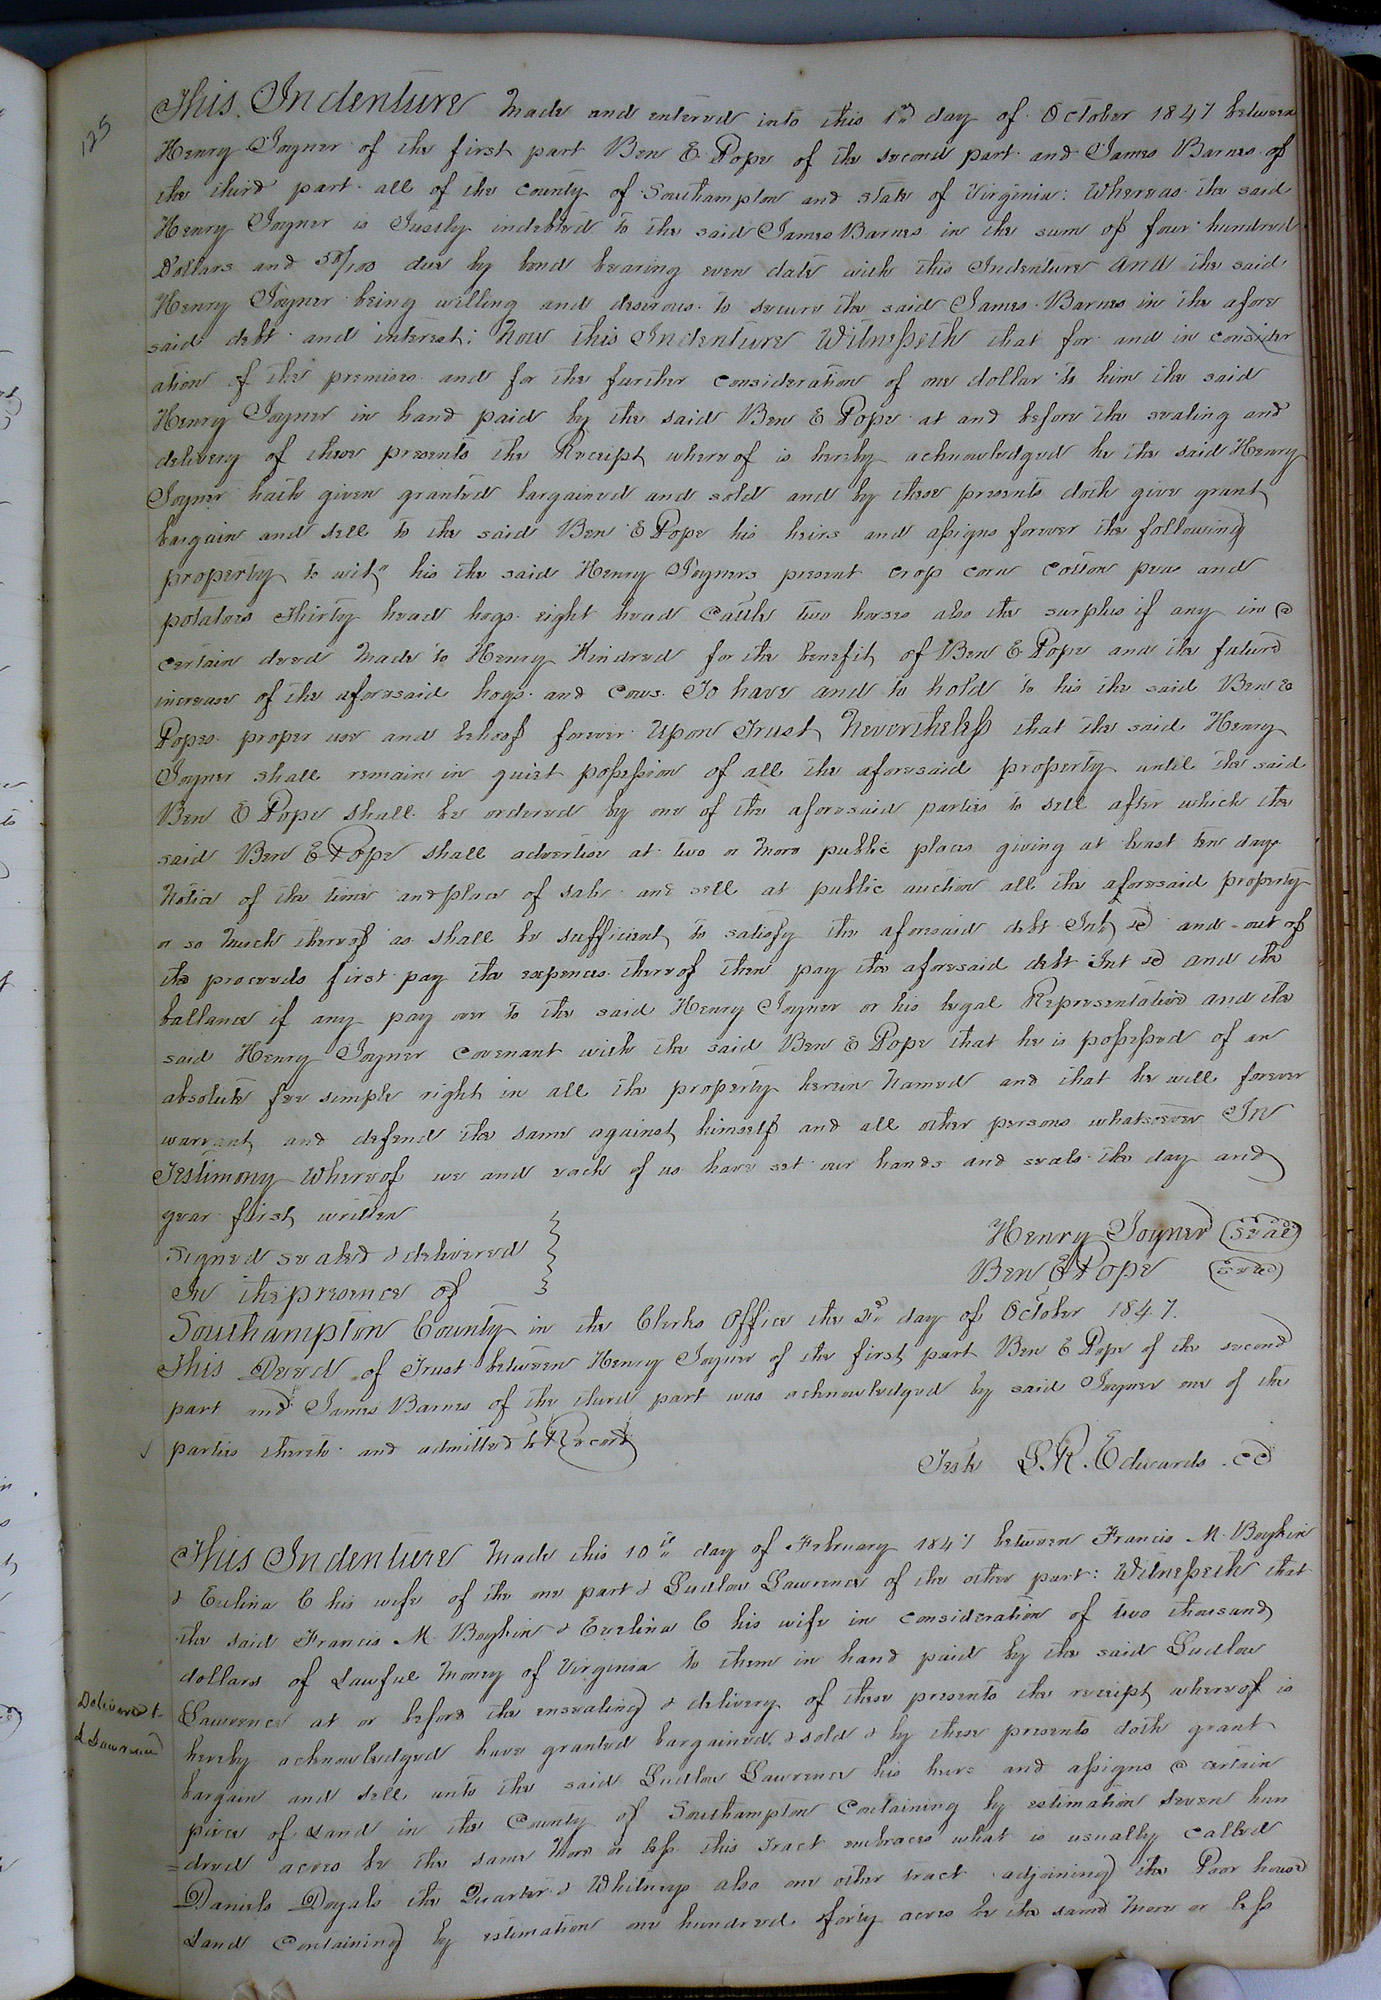 125
This Indenture Made and entered into this 1st day of October 1847 between
Henry Joyner of the first part Ben E Pope of the second part and James Barnes of
the third part all of the county of Southampton and state of Virginia: Whereas the said
Henry Joyner is Justly indebted to the said James Barnes in the sum of four hundred
Dollars and 58/100 due by bond bearing even date with this Indenture and the said
Henry Joyner being willing and desirous to secure the said James Barnes in the afore
said debt and interest: Now this Indenture Witnesseth that for and in consider
ation of the premises and for the further consideration of one dollar to him the said
Henry Joyner in hand paid by the said Ben E Pope at and before the sealing and
delivery of these presents the Receipt whereof is hereby acknowledged he the said Henry
Joyner hath given granted bargained and sold and by these presents doth give grant
bargain and sell to the said Ben E Pope his heirs and assigns forever the following
property to wit, his the said Henry Joyners present crop corn cotton peas and
potatoes Thirty head hogs eight head Cattle two horses also the surplus if any in a
certain deed Made to Henry Kindred for the benefit of Ben E Pope and the future
increase of the aforesaid hogs and cows. To have and to hold to his the said Ben E
Popes proper use and behoof forever Upon Trust Nevertheless that the said Henry
Joyner shall remain in quiet possession of all the aforesaid property until the said
Ben E Pope shall be ordered by one of the aforesaid parties to sell after which the
said Ben E Pope shall advertise at two or More public places giving at least ten days
Notice of the time and place of sale and sell at public auction all the aforesaid property
or so much thereof as shall be sufficient to satisfy the aforesaid debt Int &c and out of
the proceeds first pay the expences thereof then pay the aforesaid debt Int &c and the
ballance if any pay over to the said Henry Joyner or his legal Representative and the
said Henry Joyner covenant with the said Ben E Pope that he is possessed of an
absolute fee simple right in all the property herein Named and that he will forever
warrant and defend the same against himself and all other persons whatsoever In
Testimony Whereof we and each of us have set our hands and seals the day and
year first written
Signed sealed & delivered
In the presence of
Henry Joyner (Seal)
Ben E Pope (Seal)
Southampton County in the Clerks Office the 2d day of October 1847.
This Deed of Trust between Henry Joyner of the first part Ben E Pope of the second
part and James Barnes of the third part was acknowledged by said Joyner one of the
parties thereto and admitted to Record
Teste L. R. Edwards. CC
This Indenture Made this 10th day of February 1847 between Francis M. Boykin
& Evelina C his wife of the one part & Ludlow Lawrence of the other part: Witnesseth that
the said Francis M. Boykin & Evelina C his wife in consideration of two thousand
dollars of Lawful Money of Virginia to them in hand paid by the said Ludlow
Lawrence at or before the ensealing & delivery of these presents the receipt whereof is
hereby acknowledged have granted bargained & sold & by these presents doth grant
bargain and sell unto the said Ludlow Lawrence his heirs and assigns a certain
piece of Land in the County of Southampton Containing by estimation Seven hun
=dred acres be the same More or less this Tract embraces what is usually called
Daniels Doyals the Quarter & Whitneys also one other tract adjoining the Poor house
Land Containing by estimation one hundred forty acres be the same More or less
Delivered to
L Lawrence